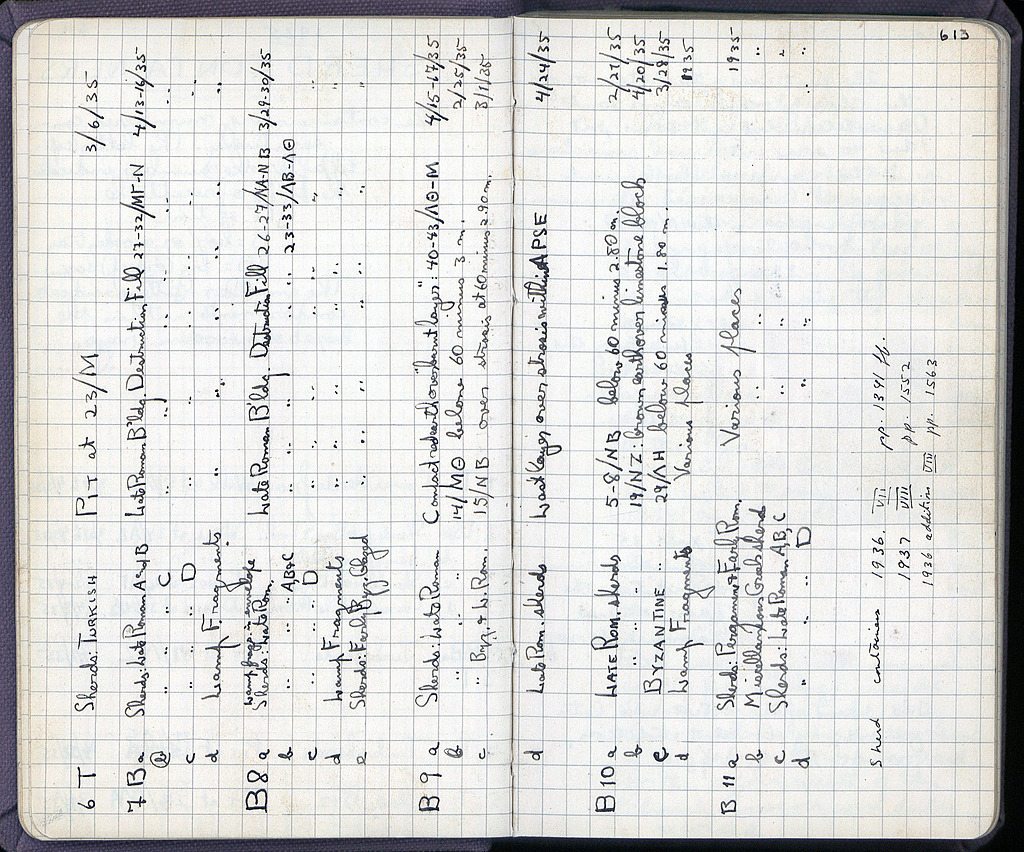 613
6 T Sherds: TURKISH PIT at 23/M 3/6/35
7 B a Sherds: Late Roman A and B Late Roman B'ldg. Destruction Fill 27-32/ΜΓ-Ν 4/13-16/35
b " " C " " " "
c " " D " " " "
d Lamp Fragments " " " "
B 8 a Lamp frags. in envelope
Sherds: Late Rom. Late Roman B'ldg. Destruction Fill 26-27/ΝΑ-ΝΒ 3/29-30/35
b " " A,B&C " " " 23-33/ΛΒ-ΛΘ
c " " D " " " " "
d Lamp Fragments " " " " "
e Sherds: Early Byz. Glazed " " " " "
B 9 a Sherds: Late Roman Compact red earth over "burnt layer": 40-43/ΛΘ-Μ 4/15-17/35
b " " " 14/ΜΘ below 60 minus 3 m. 2/25/35
c " Byz. & L. Rom. 15/ΝΒ over strosis at 60 minus 2.90 m. 3/1/35
d Late Rom. sherds Last layer over strosis within APSE 4/24/35
B 10 a LATE Rom. sherds 5-8/ΝΒ below 60 minus 2.80 m. 2/27/35
b " " " 19/ΝΖ: brown earth over limestone block 4/20/35
c BYZANTINE " 29/ΛΗ below 60 minus 1.80 m. 3/28/35
d Lamp Fragments Various places 1935
B 11 a Sherds: Pergamene & Early Rom. Various places 1935
b Miscellaneous Grab sherds " " "
c Sherds: Late Roman A,B,C " " "
d " " " D " " "
Sherd containers 1936. VII pp. 1391 ff.
1937 VIII pp. 1552
1936 additions VIII pp. 1563